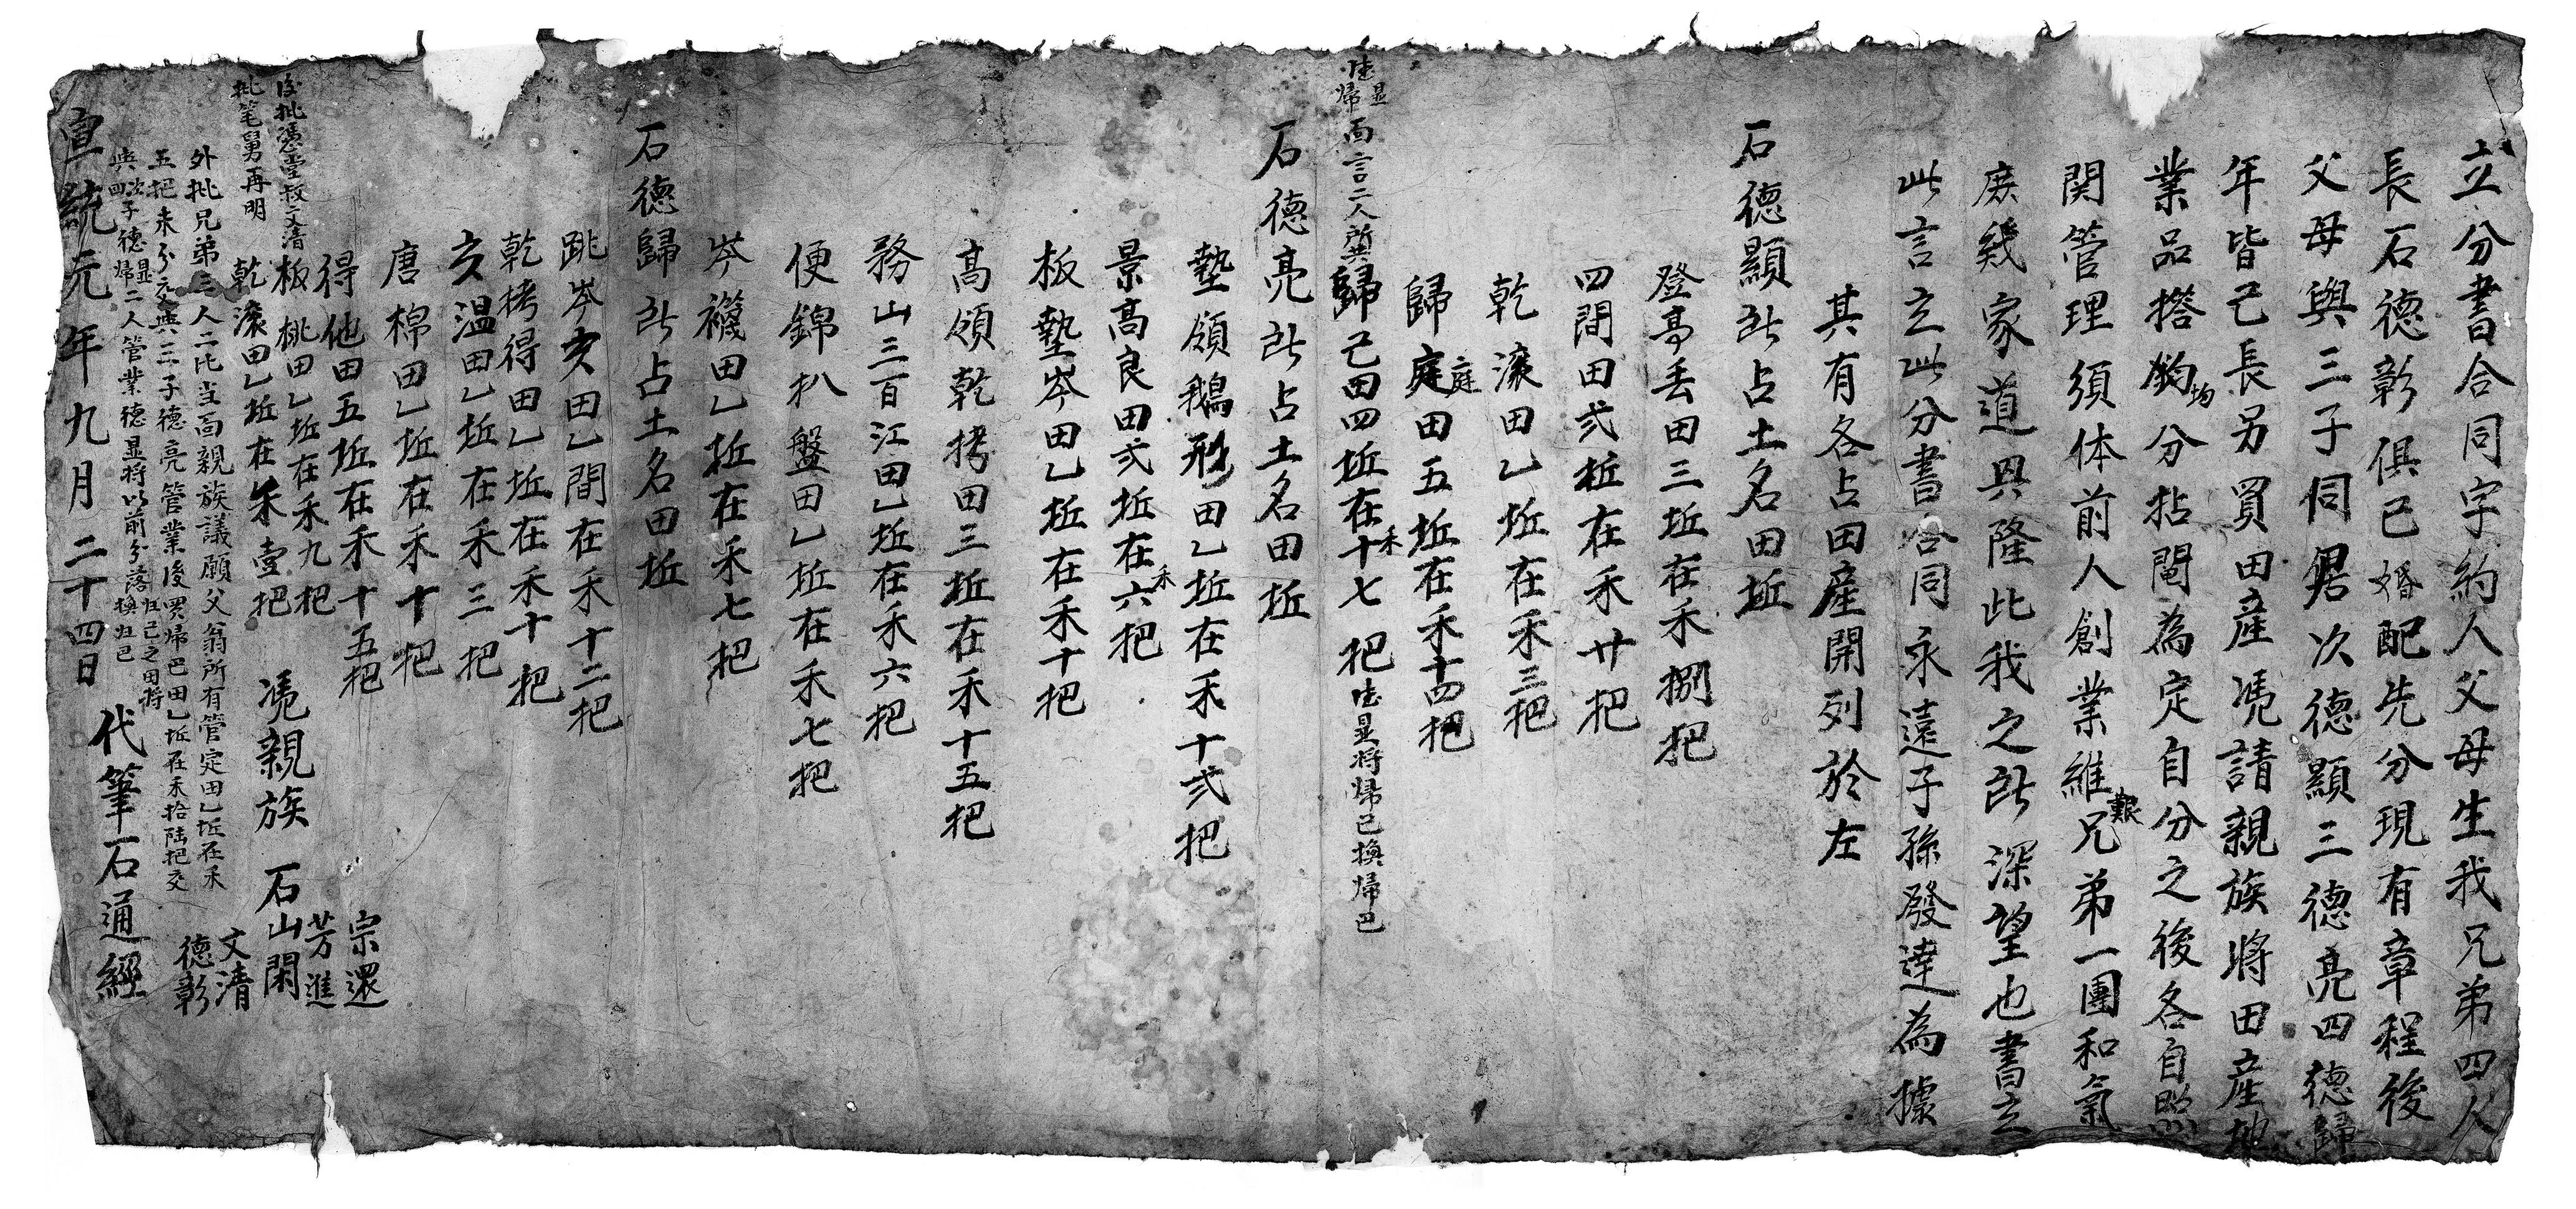 立分書合同字約人父母生我兄弟四人
長石德彰俱已婚配先分現有章程後
父母與三子同男次德顯三德亮四德歸
年皆己長另買田產慿請親族將田產地
業品搭均分拈鬮為定自分之後各自照
関管理須体前人創業維艱兄弟一團和氣
庶幾家道興隆此我之所深望也書立
此言立此分書合同永遠子孫發達為據
其有各占田產開列於左
石德顯所占土名田坵
登亭丢田三坵在禾捌把
四間田弍坵在禾廿把
乾滚田乙坵在禾三把
歸庭田五坵在禾十四把
歸己田四坵在禾十七把德显将歸己換歸巴
德显歸面言二人所共
石德亮所占土名田坵
墊領鵝形田乙坵在禾十弍把
景高良田弍坵在禾六把
板墊岑田乙坵在禾十把
高領乾拷田三坵在禾十五把
務山三百江田乙坵在禾六把
便錦朳盤田乙坵在禾七把
岑襪田乙坵在禾七把
石德歸所占土名田坵
跳岑亥田乙間在禾十二把
乾拷得田乙坵在禾十把
亥温田乙坵在禾三把
唐棉田乙坵在禾十把
得他田五坵在禾十五把
板桃田乙坵在禾九把
乾滚田乙坵在禾壹把
後批憑堂叔文清
批筆舅再明
慿親族 石山閑 宗還 芳進 文清 德彰
外批兄弟三人二比当面親族議願父翁所有管定田乙坵在禾
五把未分交與三子德亮管業後買歸巴田乙坵在禾拾陆把交
與次四子德显歸二人管業德显将以前分落归己之田将換归巴
代筆石通經
宣統元年九月二十四日